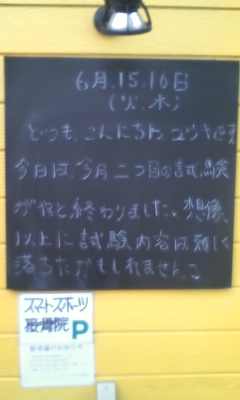 6月.15.16日
(火.水)
どうも、こんにちは、ユウキです
今日は、今月二つ目の試験
がやっと終わりました。想像
以上に試験内容は難しく
落ちたかもしれません
スマートスポーツ
接骨院 P